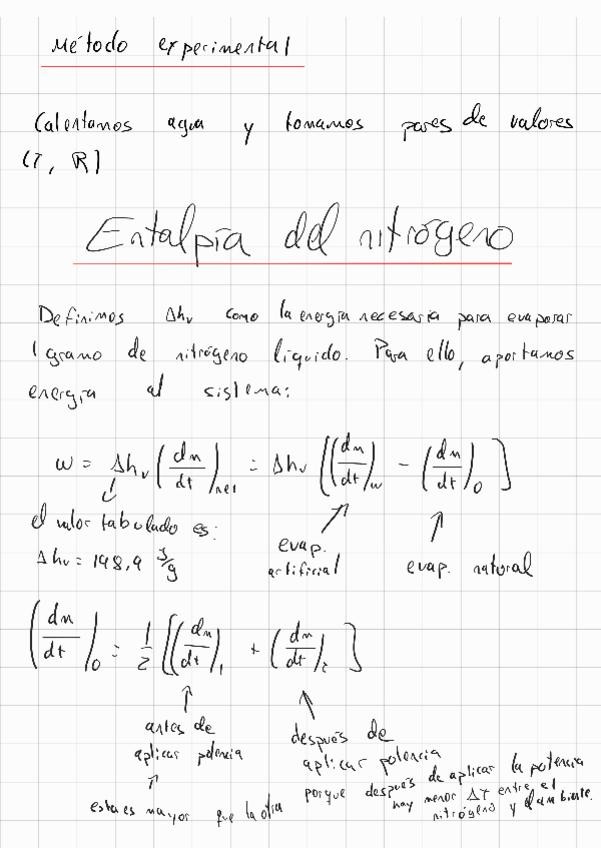 Método experimental
Calentamos agua y tomamos pares de valores
(T, R)
Entalpía del nitrógeno
Definimos Δhv como la energía necesaria para evaporar
1 gramo de nitrógeno líquido. Para ello, aportamos
energía al sistema:
w = Δhv (dm/dt)net = Δhv [(dm/dt)w - (dm/dt)0]
el valor tabulado es:
Δhv = 198,9 J/g
evap. artificial
evap. natural
(dm/dt)0 = 1/2 [(dm/dt)1 + (dm/dt)2]
antes de
aplicar potencia
después de
aplicar potencia
esta es mayor que la otra porque después de aplicar la potencia
hay menor ΔT entre el
nitrógeno y el ambiente.